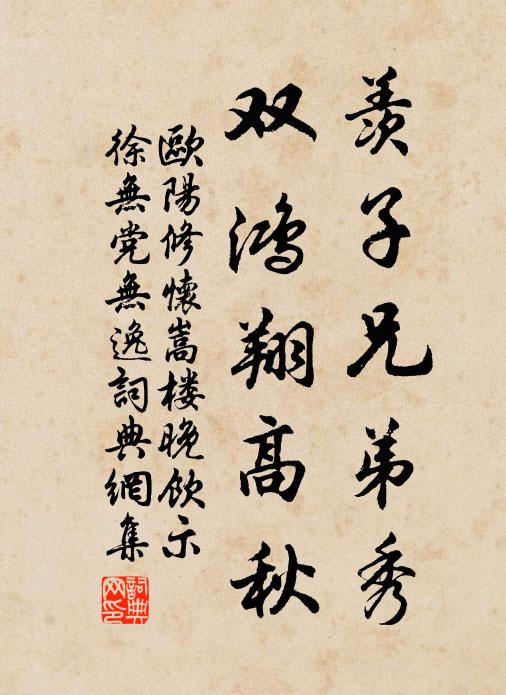 羨子兄弟秀
双鸿翔高秋
歐陽修懷嵩楼晚飲示
徐無党無逸詞典網集
詞典网印